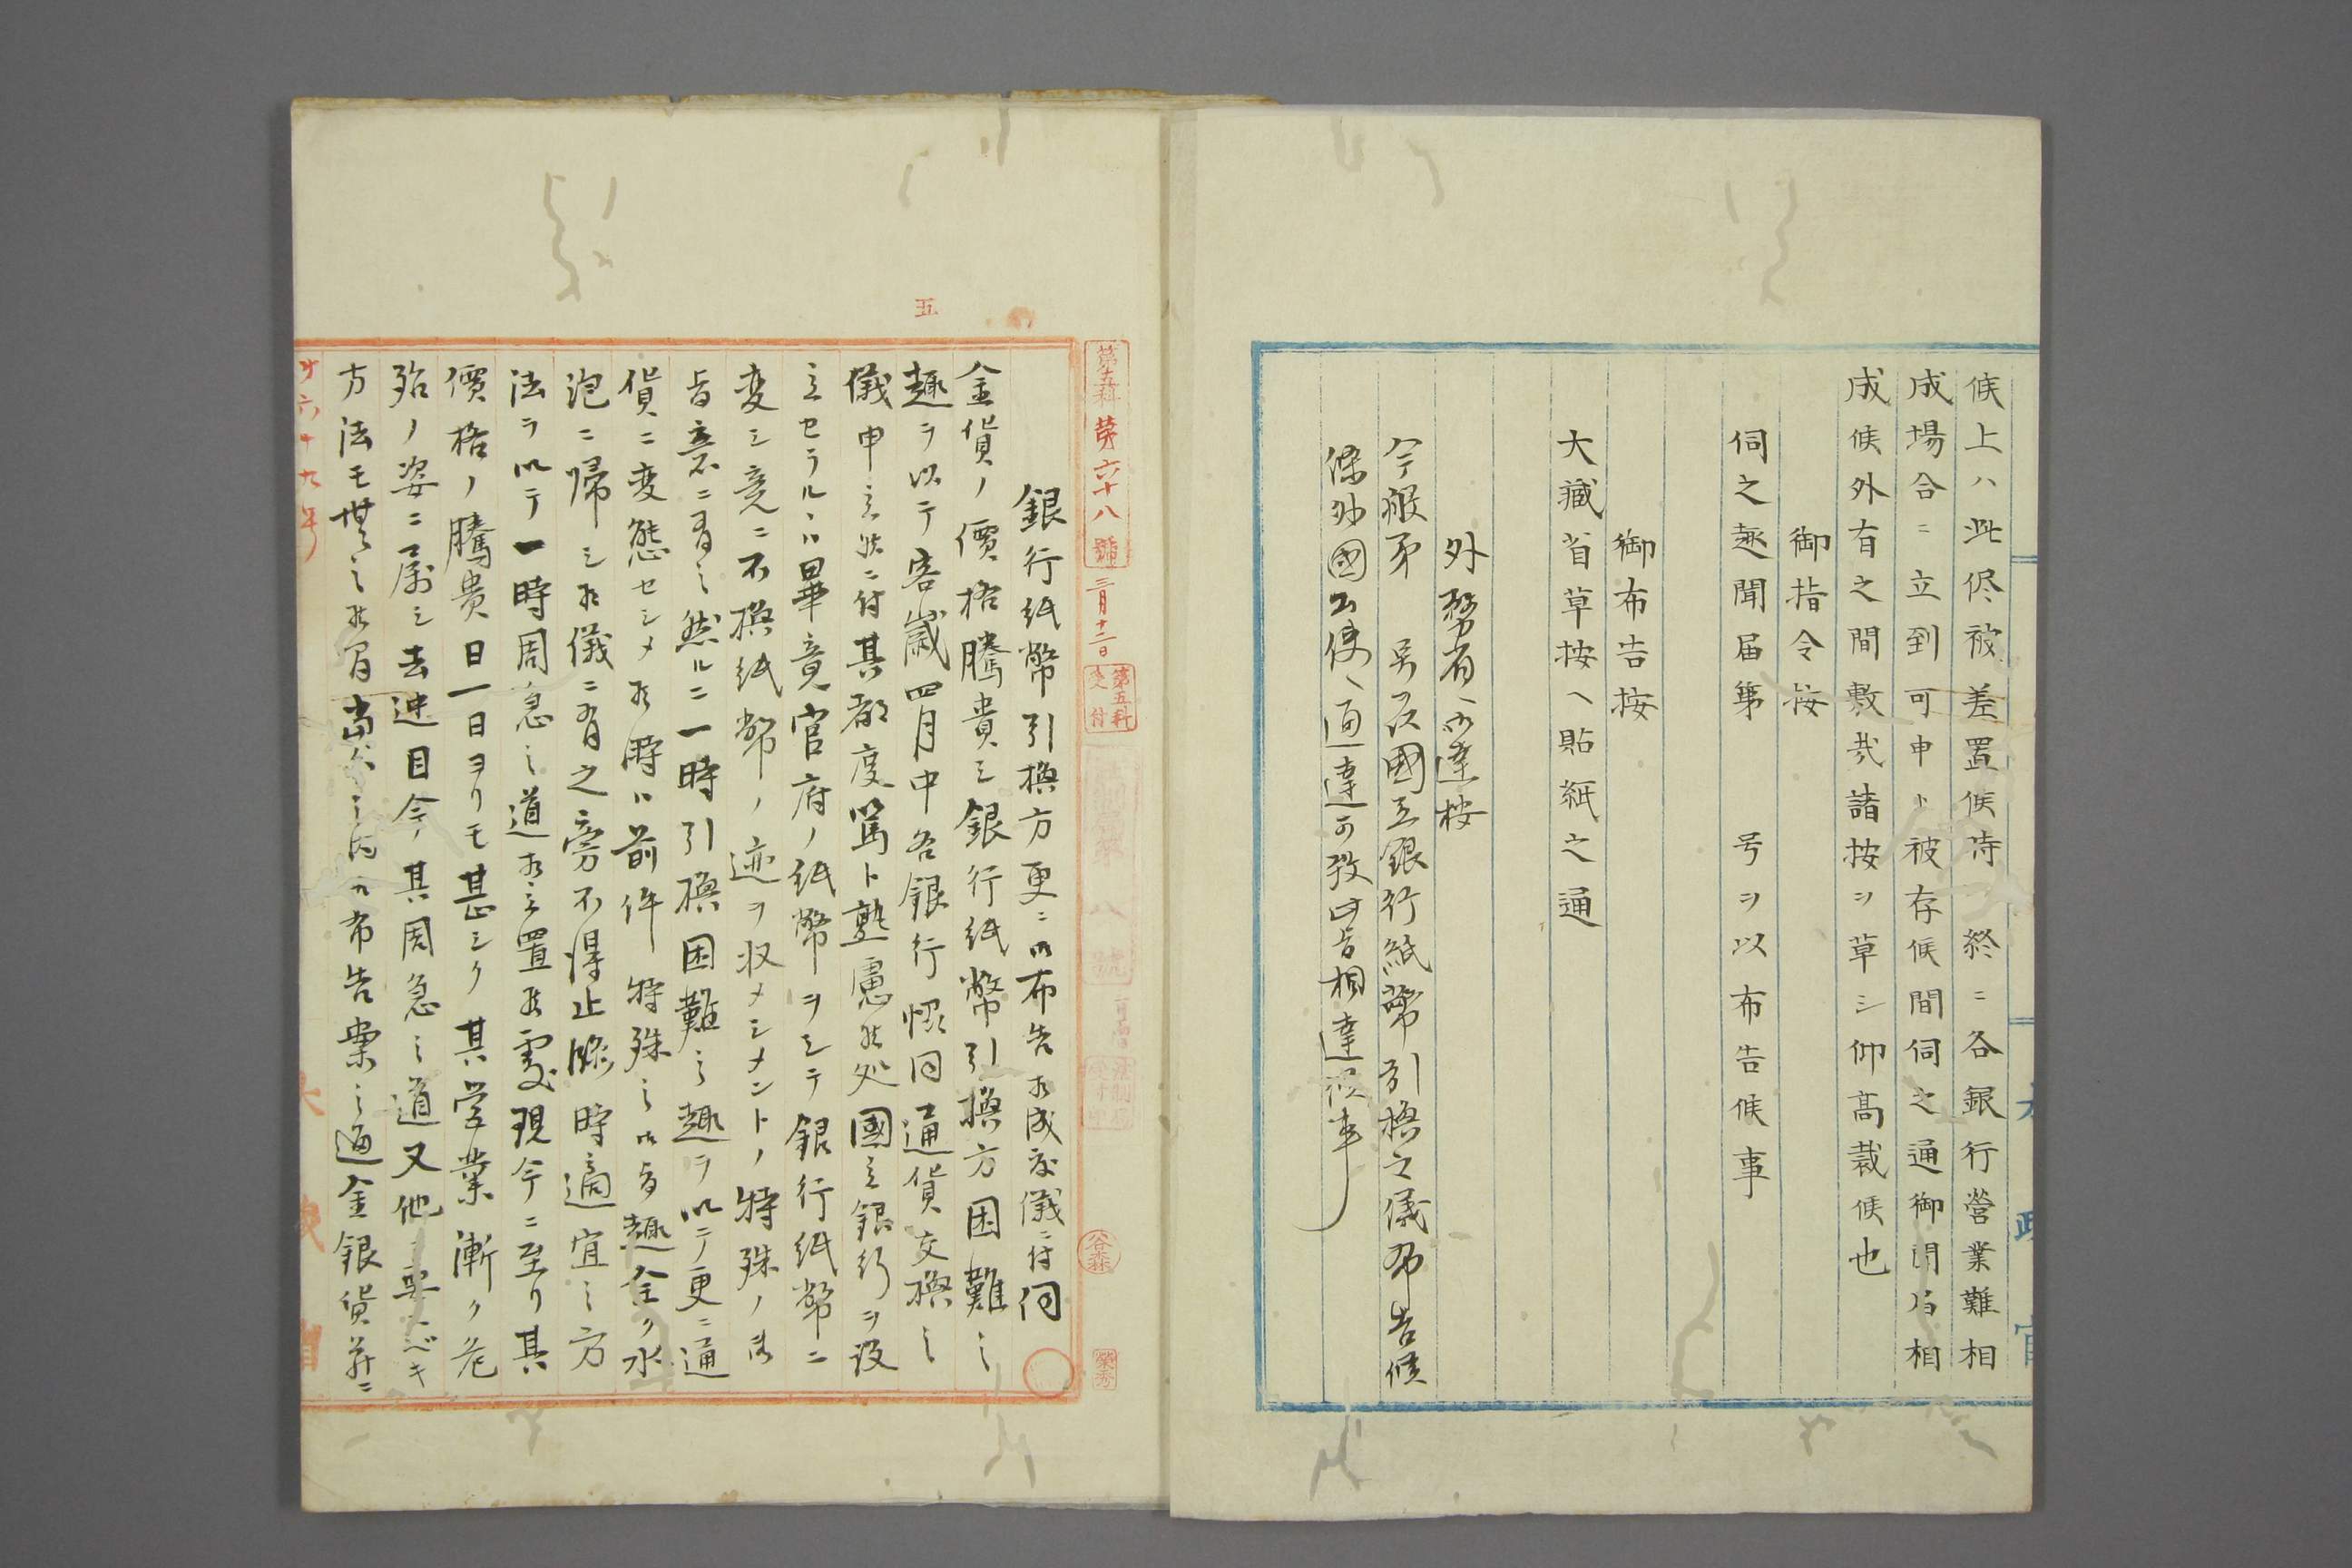 候上ハ此侭被差置候時ハ終ニ各銀行營業難相
成場合ニ立到可申ト被存候間伺之通御聞届相
成候外有之間敷哉諸按ヲ草シ仰高裁候也
御指令按
伺之趣聞届第 号ヲ以布告候事
御布告按
大藏省草按ヘ貼紙之通
外務省ヘ御達按
今般第 号ヲ以國立銀行紙幣引換之儀布告候
條外國公使ヘ通達可致此旨相達候事
第五科
第六十八號
三月十二日
第五科
受付
谷森
五
銀行紙幣引換方更ニ御布告相成度儀ニ付伺
金貨ノ價格騰貴シ銀行紙幣引換方困難之
趣ヲ以テ客歳四月中各銀行ゟ同通貨交換之
儀申立候ニ付其都度篤ト熟慮候処國立銀行ヲ設
立セラルヽハ畢竟官府ノ紙幣ヲシテ銀行紙幣ニ
変シ竟ニ不換紙幣ノ迹ヲ収メシメントノ特殊ノ御
旨意ニ有之然ルニ一時引換困難之趣ヲ以テ更ニ通
貨ニ変態セシメ候時ハ前件特殊之御旨趣全ク水
泡ニ帰シ候儀ニ有之旁不得止臨時適宜之方
法ヲ以テ一時周急之道相立置候處現今ニ至リ其
價格ノ騰貴日一日ヨリモ甚シク其営業漸ク危
殆ノ姿ニ属シ去迚目今其周急之道又他ニ要スベキ
方法モ無之候間別紙御布告案之通金銀貨幷ニ
第六十九号